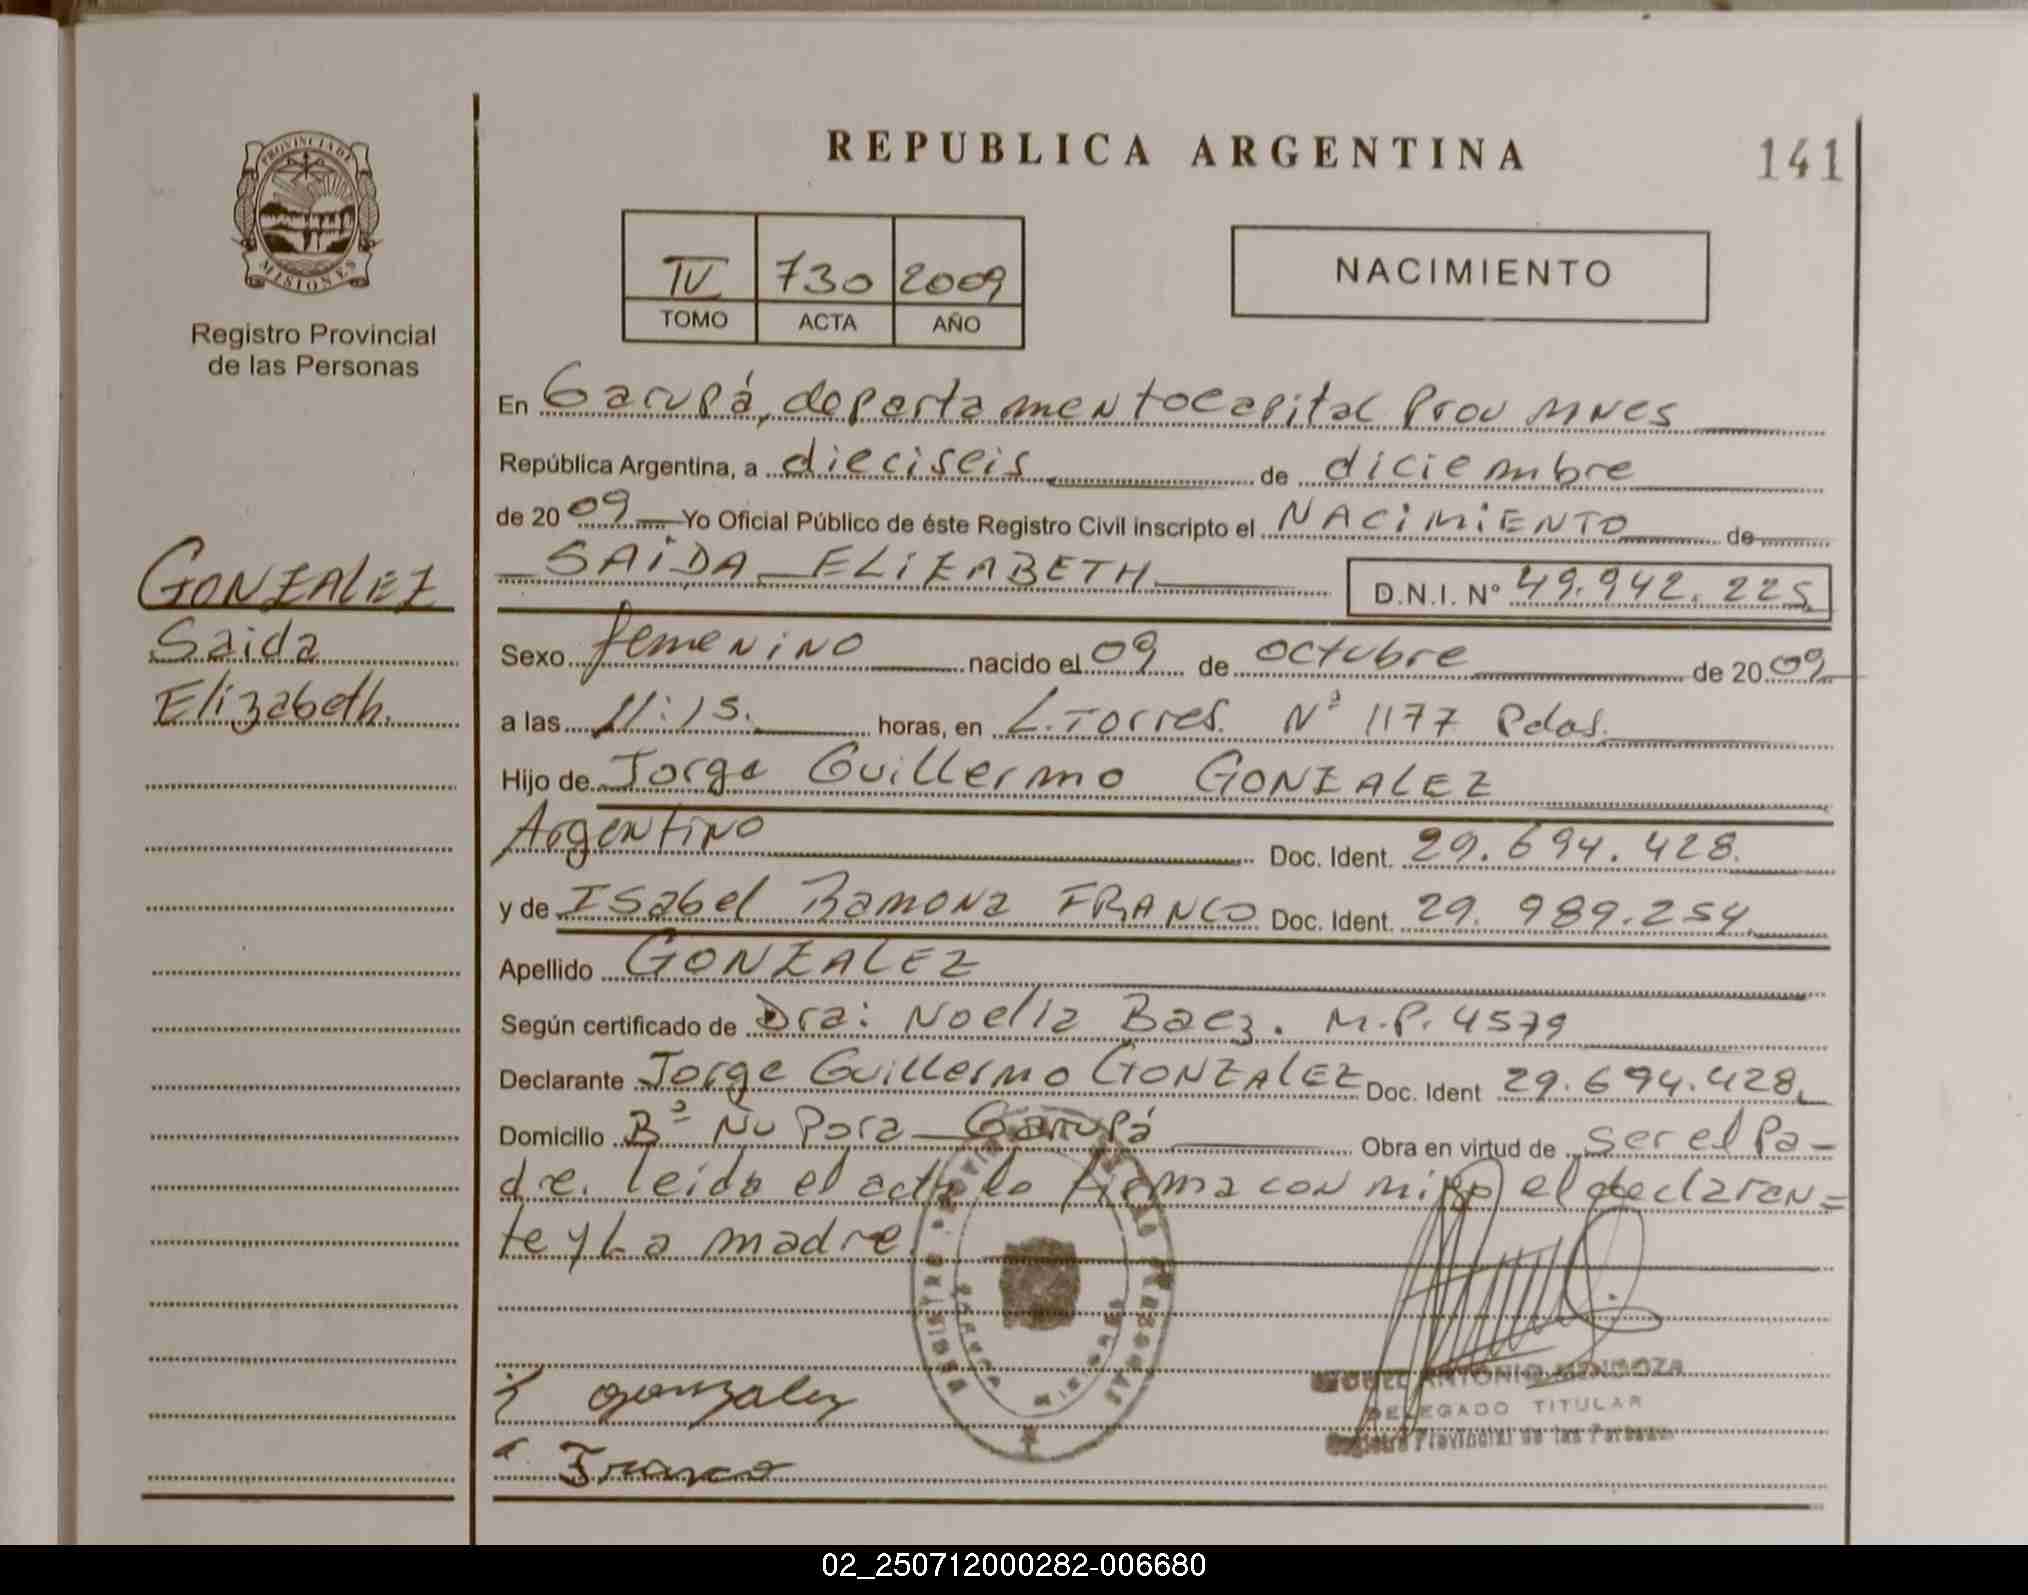 PROVINCIA DE
MISIONES
Registro Provincial
de las Personas
GONZALEZ
Saida
Elizabeth.
REPUBLICA ARGENTINA
141
IV 730 2009
TOMO ACTA AÑO
NACIMIENTO
En Garupá, departamento Capital Prov MNES
República Argentina, a dieciseis de diciembre
de 2009 Yo Oficial Público de éste Registro Civil inscripto el NACIMIENTO de
SAIDA ELIZABETH D.N.I. N° 49.942.225
Sexo femenino nacido el 09 de octubre de 2009
a las 11:15. horas, en L. Torres. N° 1177 Pdas.
Hijo de Jorge Guillermo GONZALEZ
Argentino Doc. Ident. 29.694.428.
y de Isabel Ramona FRANCO Doc. Ident. 29.989.254.
Apellido GONZALEZ
Según certificado de Dra: Noelia Baez. M.P. 4579
Declarante Jorge Guillermo GONZALEZ Doc. Ident 29.694.428.
Domicilio B° Ñu Pora Garupá Obra en virtud de ser el Pa-
dre. leida el acta la firma con migo el declaran=
te y La madre.
gonzalez
Franco
MIGUEL ANTONIO MENDOZA
DELEGADO TITULAR
Registro Provincial de las Personas
02_250712000282-006680